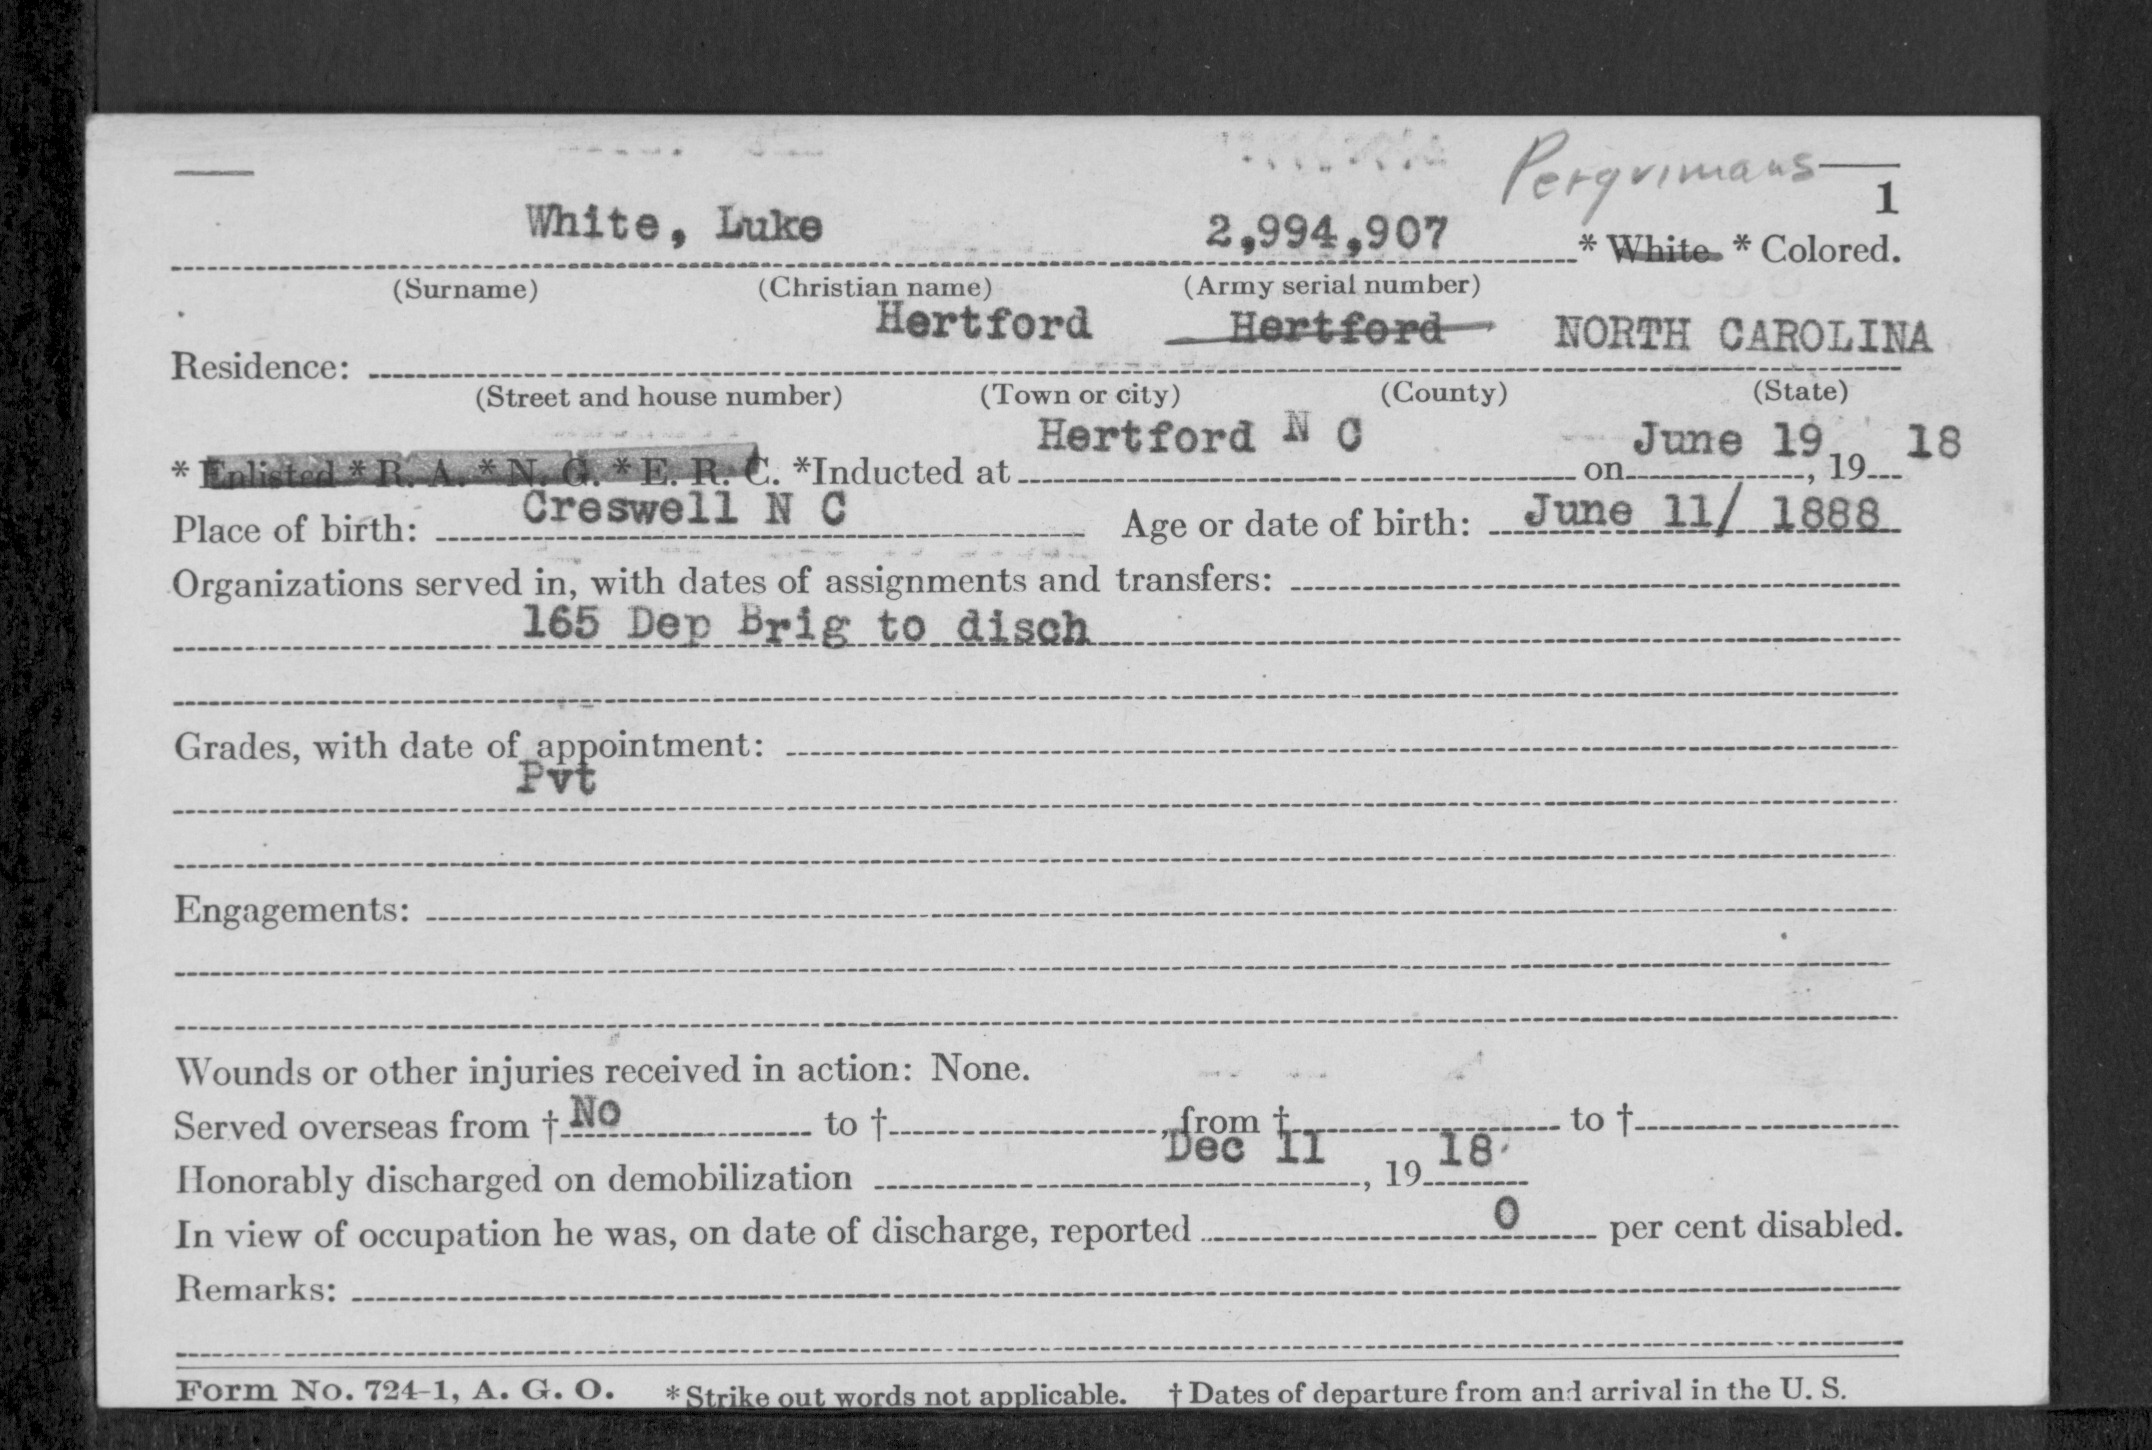 Perquimans
1
White, Luke 2,994,907 * White * Colored.
(Surname) (Christian name) (Army serial number)
Hertford Hertford NORTH CAROLINA
Residence:
(Street and house number) (Town or city) (County) (State)
Hertford N C June 19 18
* Enlisted * R. A. * N. G. * E. R. C. *Inducted at on , 19
Creswell N C June 11/ 1888
Place of birth: Age or date of birth:
Organizations served in, with dates of assignments and transfers:
165 Dep Brig to disch
Grades, with date of appointment:
Pvt
Engagements:
Wounds or other injuries received in action: None.
Served overseas from † No to † , from † to †
Dec 11 18
Honorably discharged on demobilization , 19
In view of occupation he was, on date of discharge, reported 0 per cent disabled.
Remarks:
Form No. 724-1, A. G. O. * Strike out words not applicable. † Dates of departure from and arrival in the U. S.